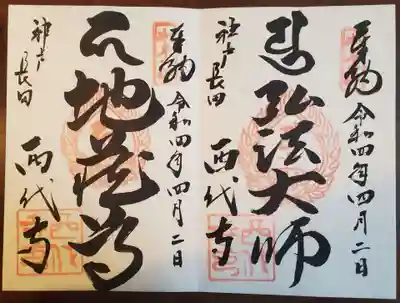 奉納
令和四年四月二日
弘法大師
神戸長田
西代寺
奉納
令和四年四月二日
地蔵尊
神戸長田
西代寺